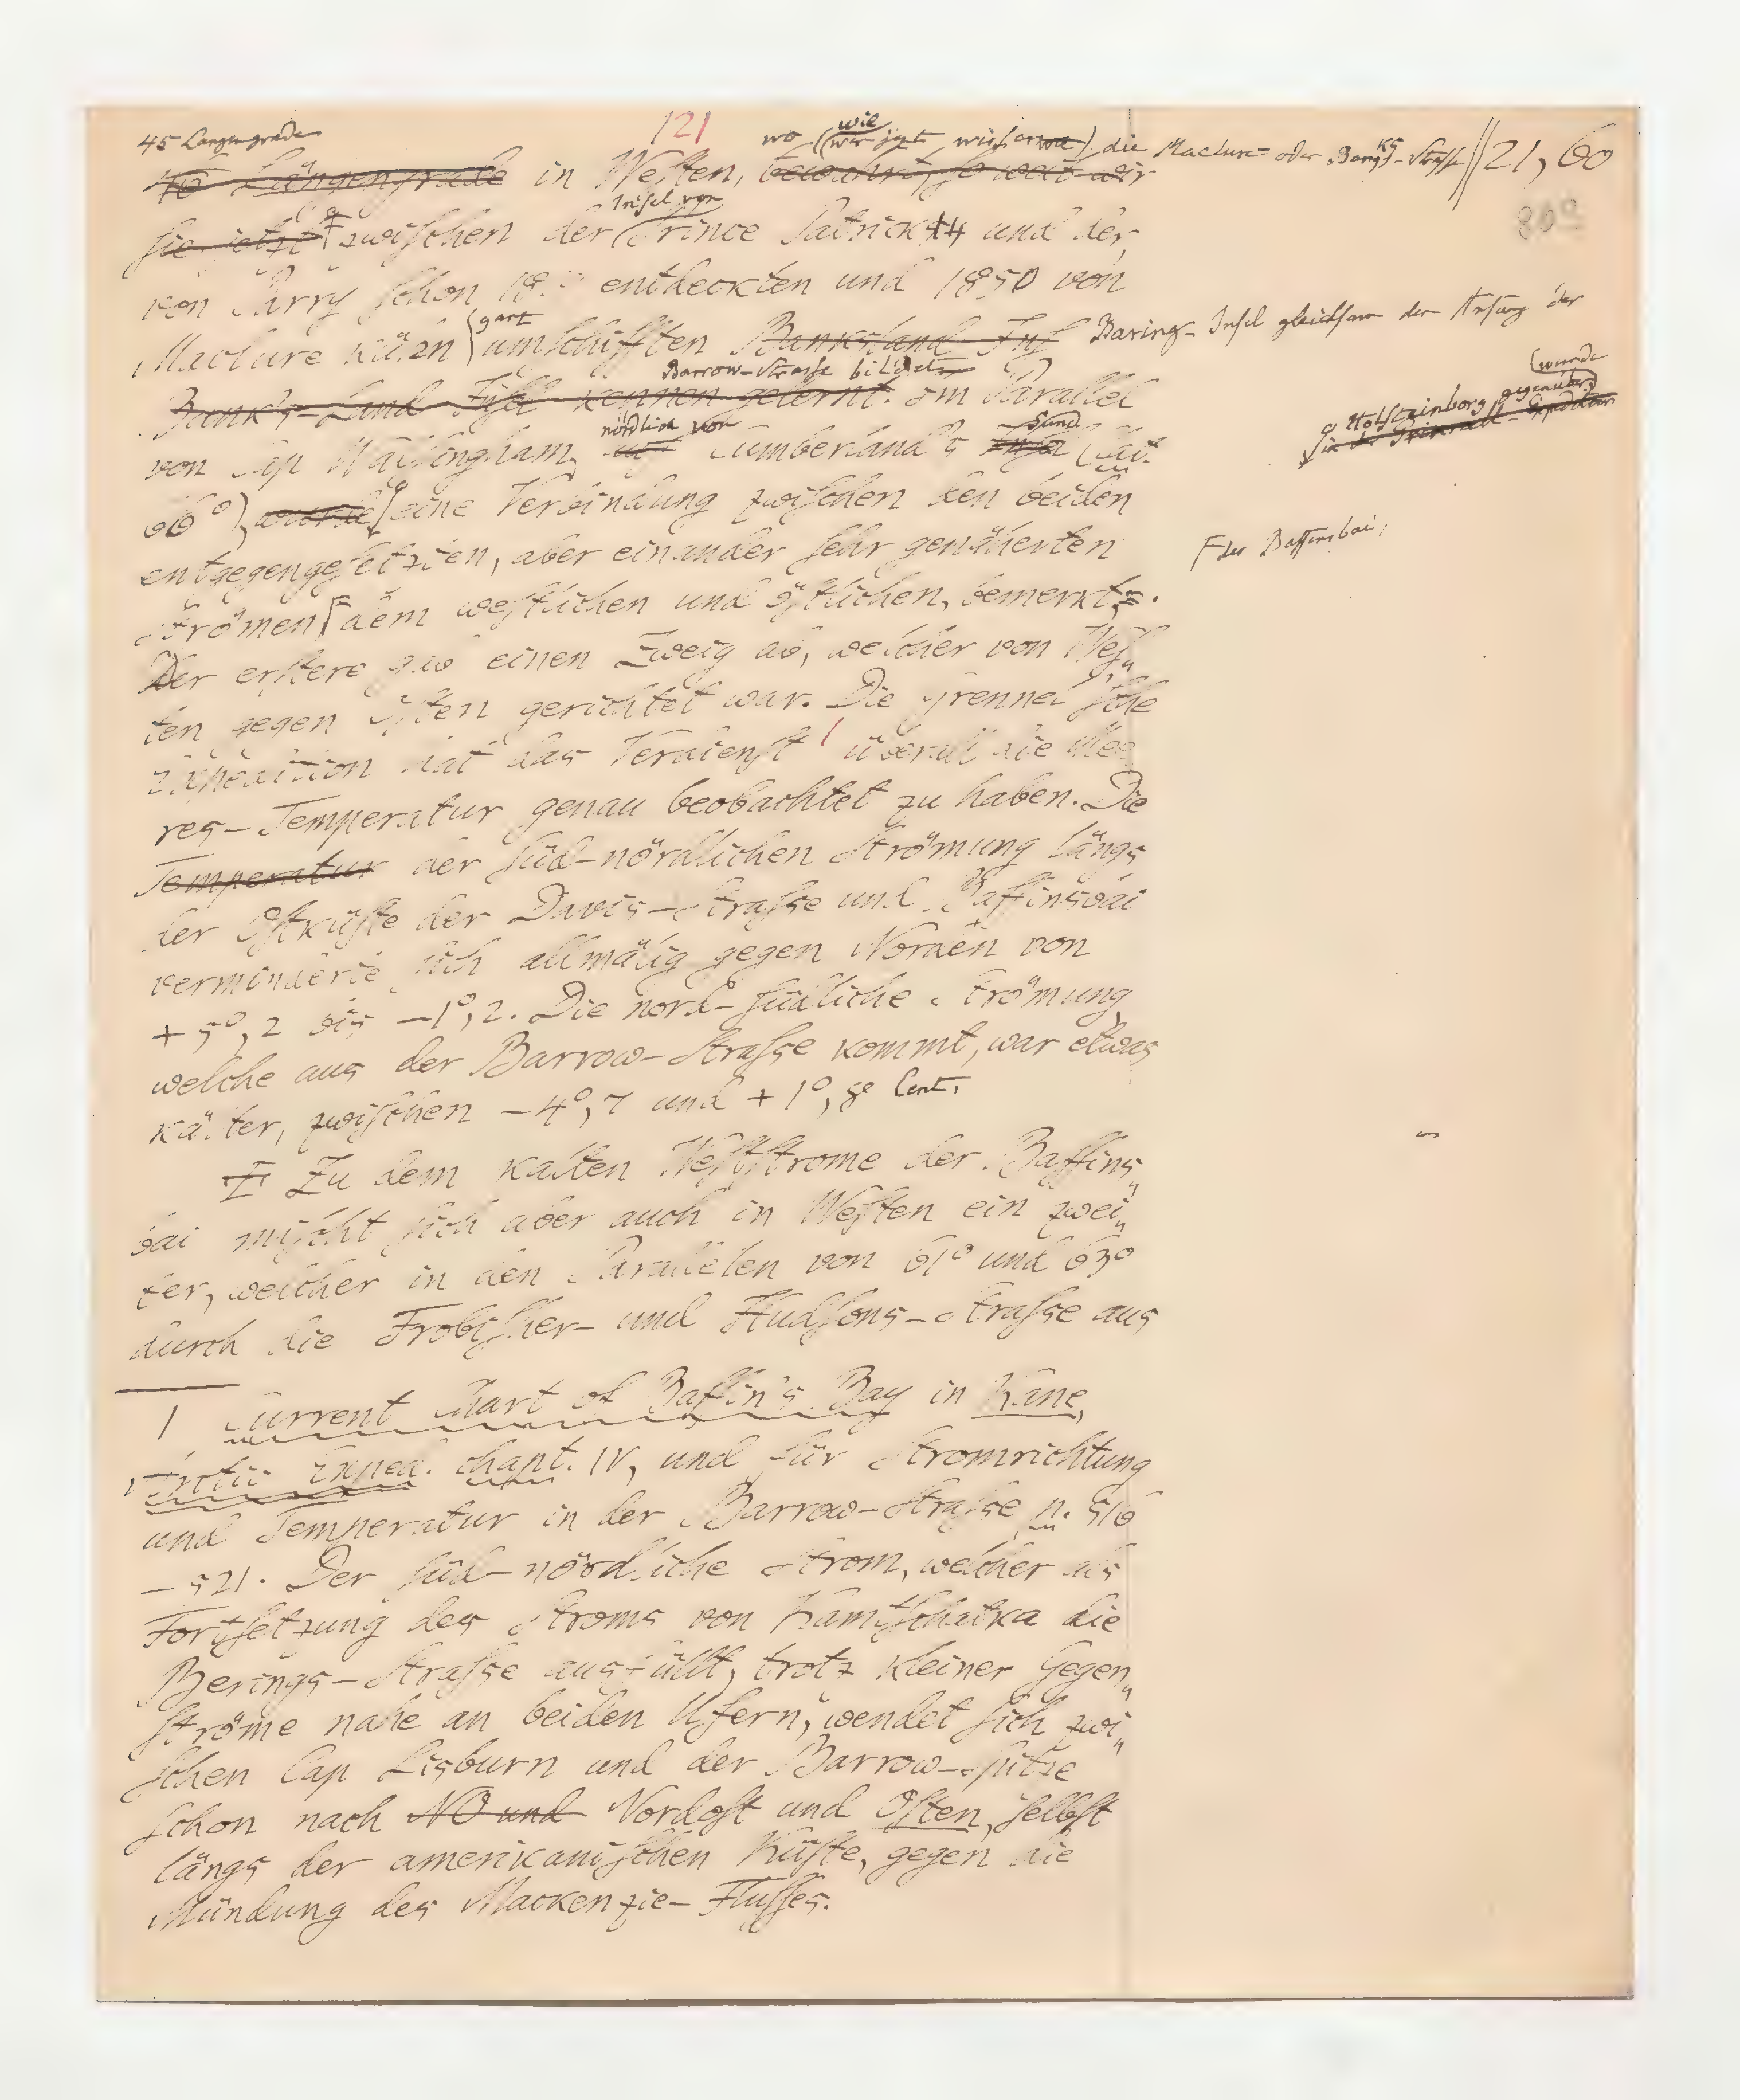 121
45 Längengrade
wo (wie wir jetzt wissen) die Maclure- oder Banks-Straße || 21, 60
40 Längengrade in Westen, bewahrt, so weit wir
80
Insel von
sie jetzt zwischen der Prince Patrick und der
von Parry schon entdeckten und 1850 von
ganz
Maclure kühn umschifften Banksland Ins Baring-Insel gleichsam der Anfang der
Barrow-Straße bildet
Bank's-Land Insel kennen gelernt. Im Parallel
wurde
Holsteinborg gegenüber
in der Grinnell-Expedition
nördlich von Sund
von Cap Walsingham, Cumberland's Insel (Lat.
66°), wurde eine Verbindung zwischen den beiden
entgegengesetzten, aber einander sehr genäherten
der Baffinsbai,
Strömen, dem westlichen und östlichen, bemerkt.
Der erstere gab einen Zweig ab, welcher von Wes„
ten gegen Osten gerichtet war. Die Grennel'sche
Expedition hat das Verdienst 1 überall die Mee
res-Temperatur genau beobachtet zu haben. Die
Temperatur der süd-nördlichen Strömung längs
der Ostküste der Davis-Straße und Baffinsbai
verminderte sich allmälig gegen Norden von
+ 5°, 2 bis -1°, 2. Die nord-südliche Strömung,
welche aus der Barrow-Straße kommt, war etwas
kälter, zwischen -4°, 7 und + 1°, 8 Cent.
Zu dem kalten Weststrome der Baffins„
bai mischt sich aber auch in Westen ein zwei„
ter, welcher in den Parallelen von 61° und 63°
durch die Frobisher- und Hudsons-Straße aus
1 Current Chart of Baffin's Bay in Kane,
Arctic Exped. chapt. IV, und für Stromrichtung
und Temperatur in der Barrow-Straße p. 516
- 521. Der süd-nördliche Strom, welcher als
Fortsetzung des Stroms von Kamtschatka die
Berings-Straße ausfüllt, trotz kleiner Gegen„
ströme nahe an beiden Ufern, wendet sich zwi„
schen Cap Lisburn und der Barrow-Spitze
schon nach NO und Nordost und Osten, selbst
längs der amerikanischen Küste, gegen die
Mündung des Mackenzie-Flusses.